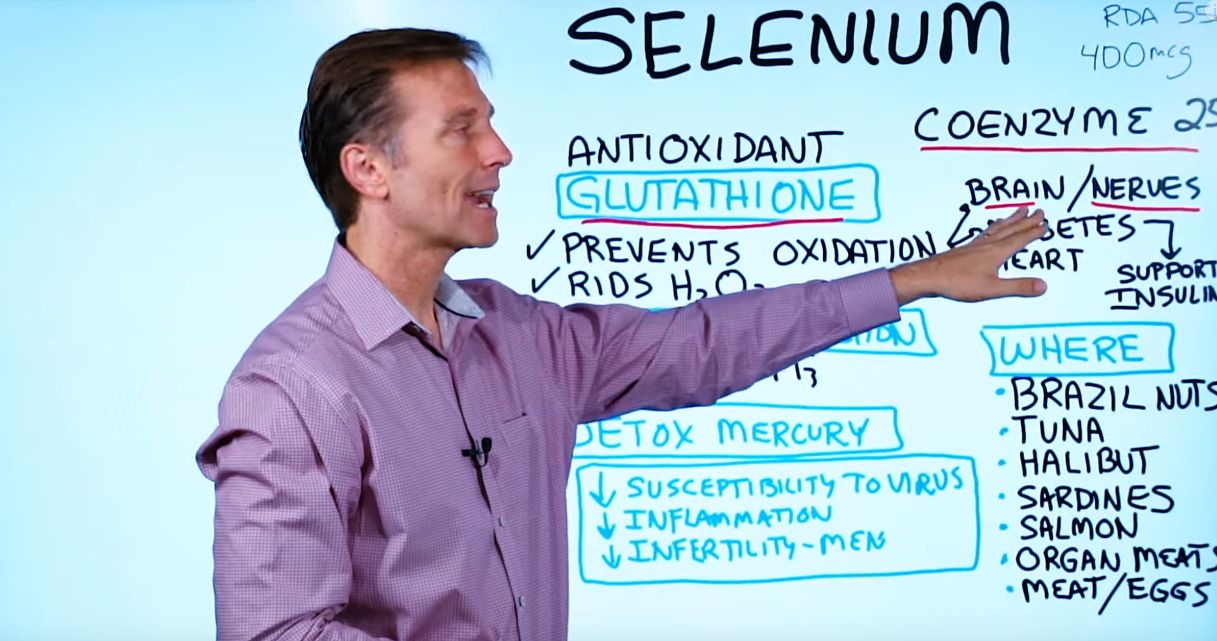 SELENIUM
RDA 55
400mcg
ANTIOXIDANT
GLUTATHIONE
✓ PREVENTS OXIDATION
✓ RIDS H₂O₂
DETOX MERCURY
↓ SUSCEPTIBILITY TO VIRUS
↓ INFLAMMATION
↓ INFERTILITY-MEN
COENZYME 25
BRAIN/NERVES
HEART
SUPPORT
INSULIN
WHERE
• BRAZIL NUTS
• TUNA
• HALIBUT
• SARDINES
• SALMON
• ORGAN MEATS
• MEAT/EGGS